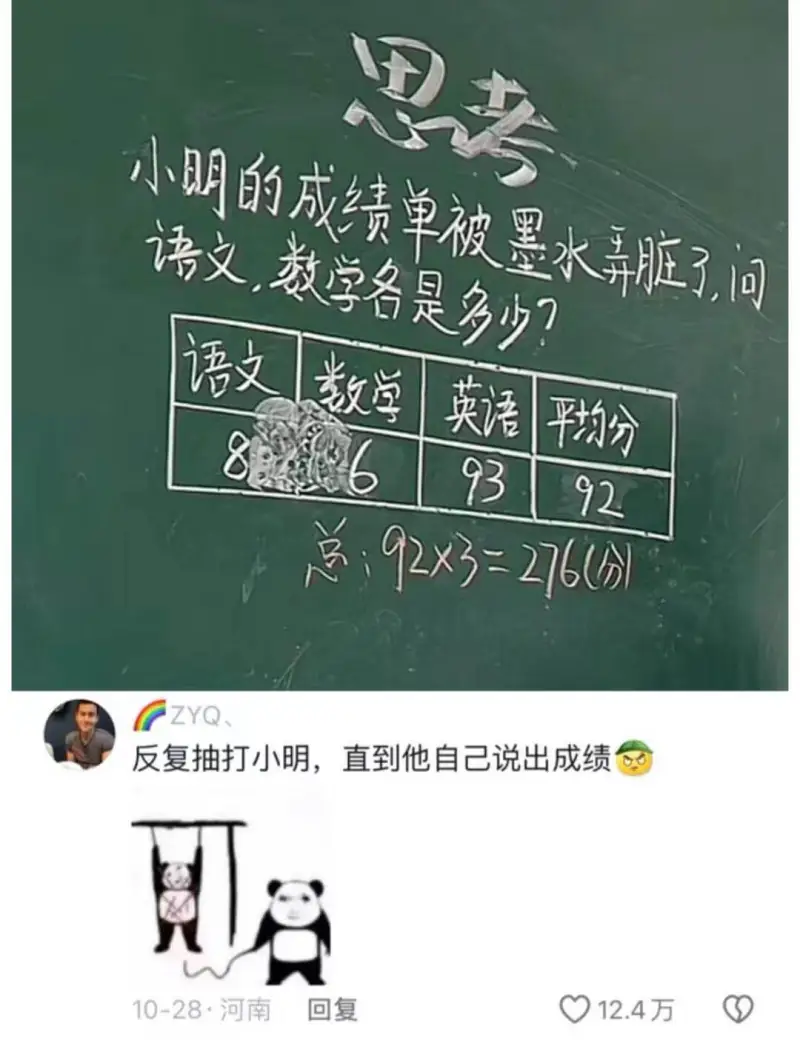 思考
小明的成绩单被墨水弄脏了,问
语文,数学各是多少?
语文 数学 英语 平均分
8 6 93 92
总:92×3=276(分)
🌈ZYQ、
反复抽打小明，直到他自己说出成绩
10-28·河南 回复 12.4万